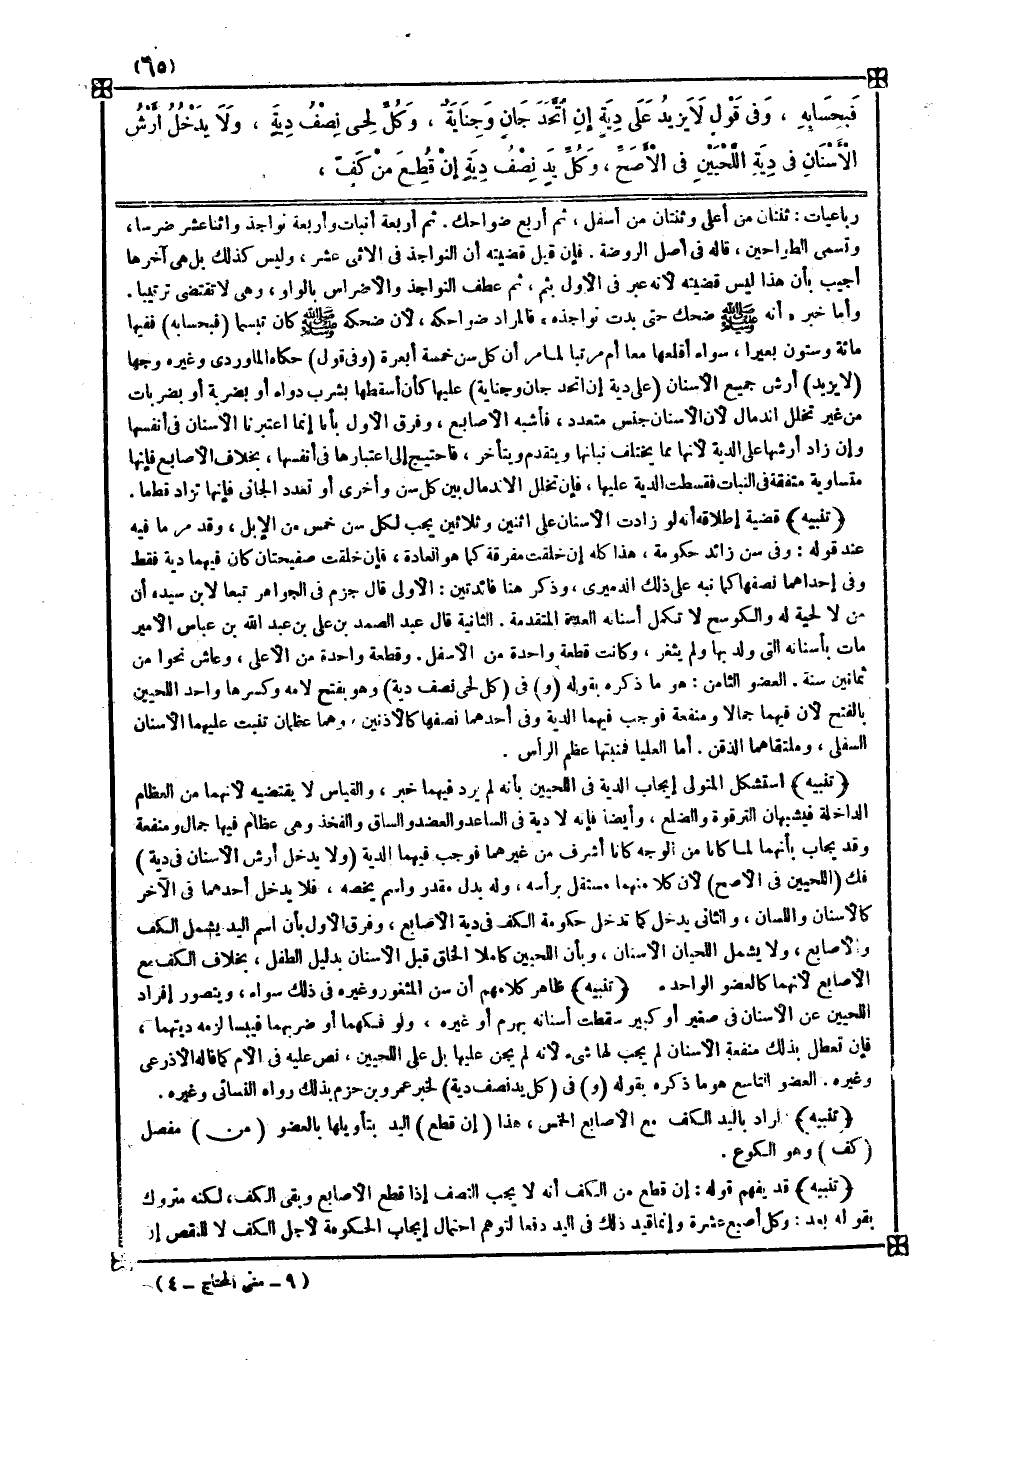 (٦٥)
فَبِحِسَابِهِ ، وَفِى قَوْلٍ لَا يَزِيدُ عَلَى دِيَةٍ إِنِ اتَّحَدَ جَانٍ وَجِنَايَةٌ ، وَكُلُّ لَحْىٍ نِصْفُ دِيَةٍ ، وَلَا يَدْخُلُ أَرْشُ
الْأَسْنَانِ فِى دِيَةِ اللَّحْيَيْنِ فِى الْأَصَحِّ ، وَكُلُّ يَدٍ نِصْفُ دِيَةٍ إِنْ قُطِعَ مِنْ كَفٍّ ،
رباعيات : ثنتان من أعلى وثنتان من أسفل ، ثم أربع ضواحك . ثم أربعة أنياب وأربعة نواجذ واثنا عشر ضرسا ،
وتسمى الطواحين ، قاله فى أصل الروضة . فإن قيل قضيته أن النواجذ فى الاثنى عشر ، وليس كذلك بل هى آخرها
أجيب بأن هذا ليس قضيته لانه عبر فى الاول بثم ، ثم عطف النواجذ والاضراس بالواو ، وهى لا تقتضى ترتيبا .
وأما خبر « أنه ﷺ ضحك حتى بدت نواجذه » فالمراد ضواحكه ، لان ضحكه ﷺ كان تبسما (فبحسابه) ففيها
مائة وستون بعيرا ، سواء أقلعها معا أم مرتبا لما مر أن كل سن خمسة أبعرة (وفى قول) حكاه الماوردى وغيره وجها
(لا يزيد) أرش جميع الأسنان (على دية إن اتحد جان وجناية) عليها كأن أسقطها بشرب دواء أو بضربة أو بضربات
من غير تخلل اندمال لان الاسنان جنس متعدد ، فأشبه الاصابع ، وفرق الاول بأنا إنما اعتبرنا الاسنان فى أنفسها
وإن زاد أرشها على الدية لانها مما يختلف نباتها ويتقدم ويتأخر ، فاحتيج إلى اعتبارها فى أنفسها ، بخلاف الاصابع فإنها
متساوية متفقة فى النبات فقسطت الدية عليها ، فإن تخلل الاندمال بين كل سن وأخرى أو تعدد الجانى فإنها تزاد قطعا .
(تنبيه) قضية إطلاقه أنه لو زادت الاسنان على اثنين وثلاثين يجب لكل سن خمس من الإبل ، وقد مر ما فيه
عند قوله : وفى سن زائد حكومة ، هذا كله إن خلقت مفرقة كما هو العادة ، فإن خلقت صفيحتان كان فيهما دية فقط
وفى إحداهما نصفها كما نبه على ذلك الدميرى ، وذكر هنا فائدتين : الاولى قال جزم فى الجواهر تبعا لابن سيده أن
من لا لحية له والكوسج لا تكمل أسنانه العدة المتقدمة . الثانية قال عبد الصمد بن على بن عبد الله بن عباس الامير
مات بأسنانه التى ولد بها ولم يثغر ، وكانت قطعة واحدة من الاسفل . وقطعة واحدة من الاعلى ، وعاش نحوا من
ثمانين سنة . العضو الثامن : هو ما ذكره بقوله (و) فى (كل لحى نصف دية) وهو بفتح لامه وكسرها واحد اللحيين
بالفتح لان فيهما جمالا ومنفعة فوجب فيهما الدية وفى أحدهما نصفها كالاذنين ، وهما عظمان تنبت عليهما الاسنان
السفلى ، وملتقاهما الذقن . أما العليا فمنبتها عظم الرأس .
(تنبيه) استشكل المتولى إيجاب الدية فى اللحيين بأنه لم يرد فيهما خبر ، والقياس لا يقتضيه لانهما من العظام
الداخلة فيشبهان الترقوة والضلع ، وأيضا فإنه لا دية فى الساعد والعضد والساق والفخذ وهى عظام فيها جمال ومنفعة
وقد يجاب بأنهما لما كانا من الوجه كانا أشرف من غيرهما فوجب فيهما الدية (ولا يدخل أرش الاسنان فى دية)
فك (اللحيين فى الاصح) لان كلا منهما مستقل برأسه ، وله بدل مقدر واسم يخصه ، فلا يدخل أحدهما فى الآخر
كالاسنان واللسان ، والثانى يدخل كما تدخل حكومة الكف فى دية الاصابع ، وفرق الاول بأن اسم اليد يشمل الكف
والاصابع ، ولا يشمل اللحيان الاسنان ، وبأن اللحيين كاملا الخلق قبل الاسنان بدليل الطفل ، بخلاف الكف مع
الاصابع لانهما كالعضو الواحد . (تنبيه) ظاهر كلامهم أن سن المثغور وغيره فى ذلك سواء ، ويتصور إفراد
اللحيين عن الاسنان فى صغير أو كبير سقطت أسنانه بهرم أو غيره ، ولو فكهما أو ضربهما فيبسا لزمه ديتهما ،
فإن تعطل بذلك منفعة الاسنان لم يجب لها شىء لانه لم يجن عليها بل على اللحيين ، نص عليه فى الام كما قاله الاذرعى
وغيره . العضو التاسع هو ما ذكره بقوله (و) فى (كل يد نصف دية) لخبر عمرو بن حزم بذلك رواه النسائى وغيره .
(تنبيه) اراد باليد الكف مع الاصابع الخمس ، هذا (إن قطع) اليد بتأويلها بالعضو (من) مفصل
(كف) وهو الكوع .
(تنبيه) قد يفهم قوله : إن قطع من الكف أنه لا يجب النصف إذا قطع الاصابع وبقى الكف ، لكنه متروك
بقوله بعد : وكل أصبع عشرة وإنما قيد ذلك فى اليد دفعا لتوهم احتمال إيجاب الحكومة لاجل الكف لا للنقص إن
(٩ - مغنى المحتاج - ٤)